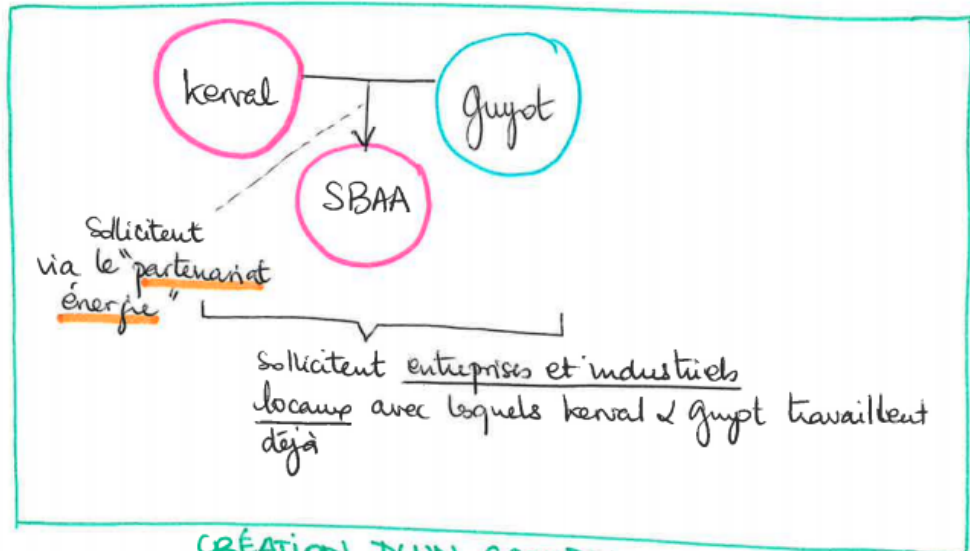 Kerval
Guyot
SBAA
Sollicitent
via le "partenariat
énergie"
sollicitent entreprises et industriels
locaux avec lesquels kerval & Guyot travaillent
déjà
CRÉATION D'UN